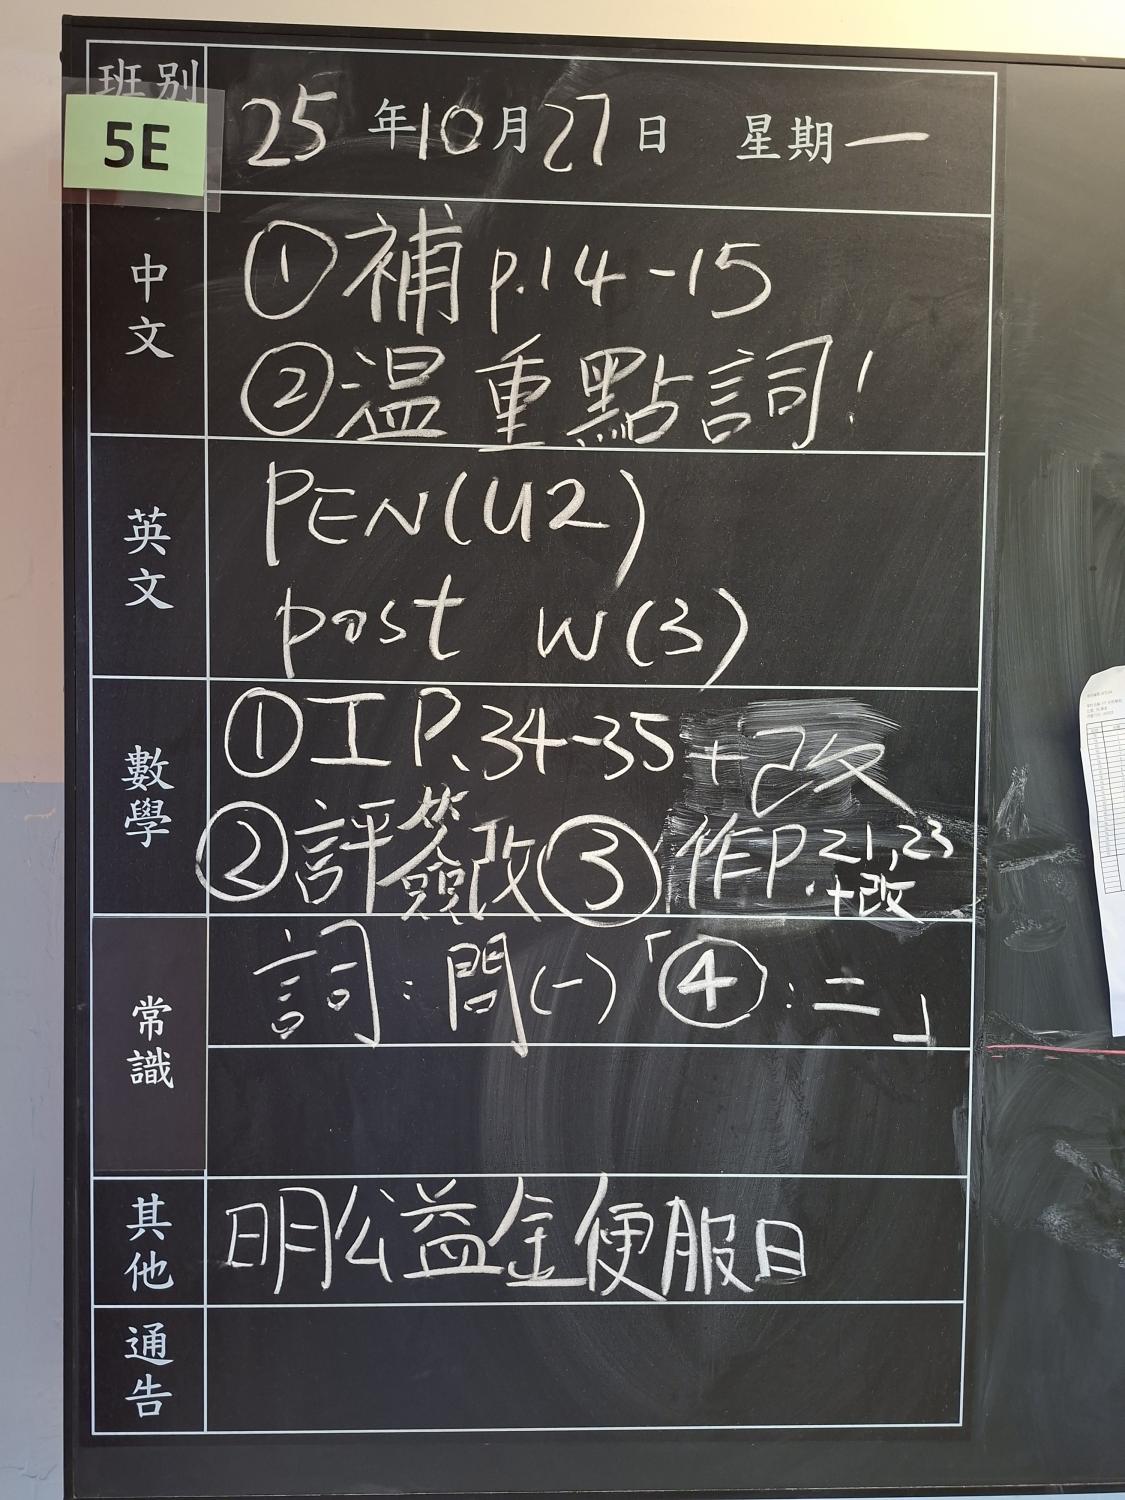 班別
5E
25年10月27日 星期一
中文
①補p.14-15
②温重點詞!
英文
PEN(U2)
post W(3)
數學
①工P.34-35+改
②評簽改③作P.21,23
+改
常識
詞:問(一)「④:二」
其他
明公益金便服日
通告